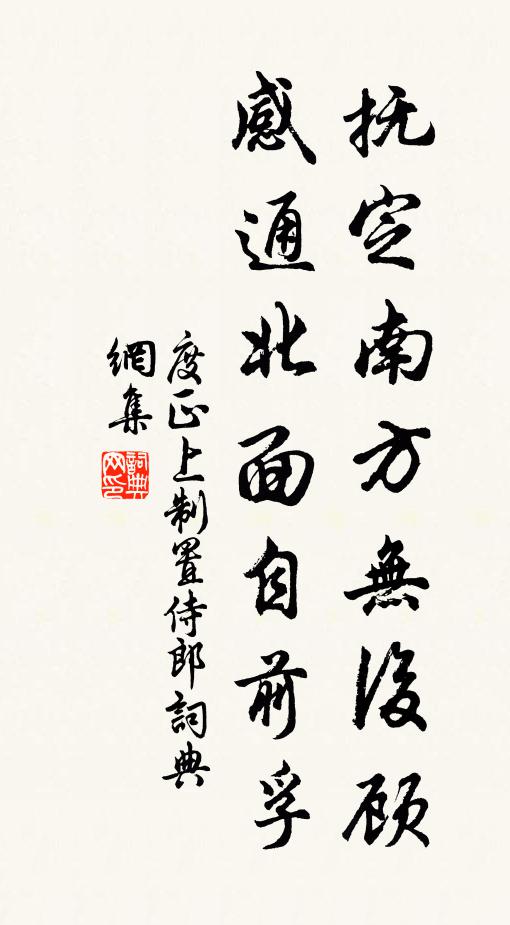 抚定南方無後顾
感通北面自前孚
度正上制置侍郎詞典
網集
詞典網印